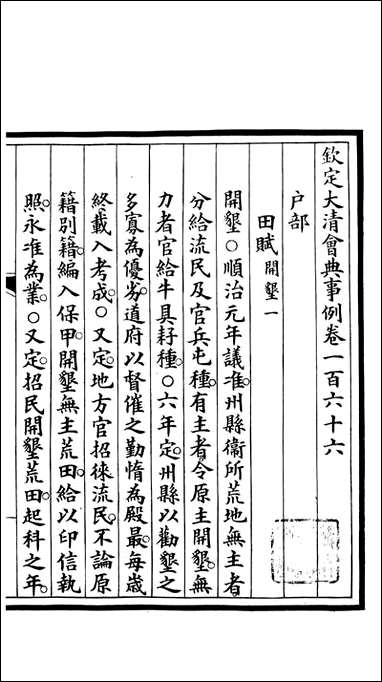 欽定大清會典事例卷一百六十六
户部
田賦開墾一
開墾○順治元年議准州縣衞所荒地無主者
分給流民及官兵屯種有主者令原主開墾無
力者官給牛具籽種○六年定州縣以勸墾之
多寡為優劣道府以督催之勤惰為殿最每歲
終載入考成○又定地方官招徠流民不論原
籍別籍編入保甲開墾無主荒田給以印信執
照永准為業○又定招民開墾荒田起科之年